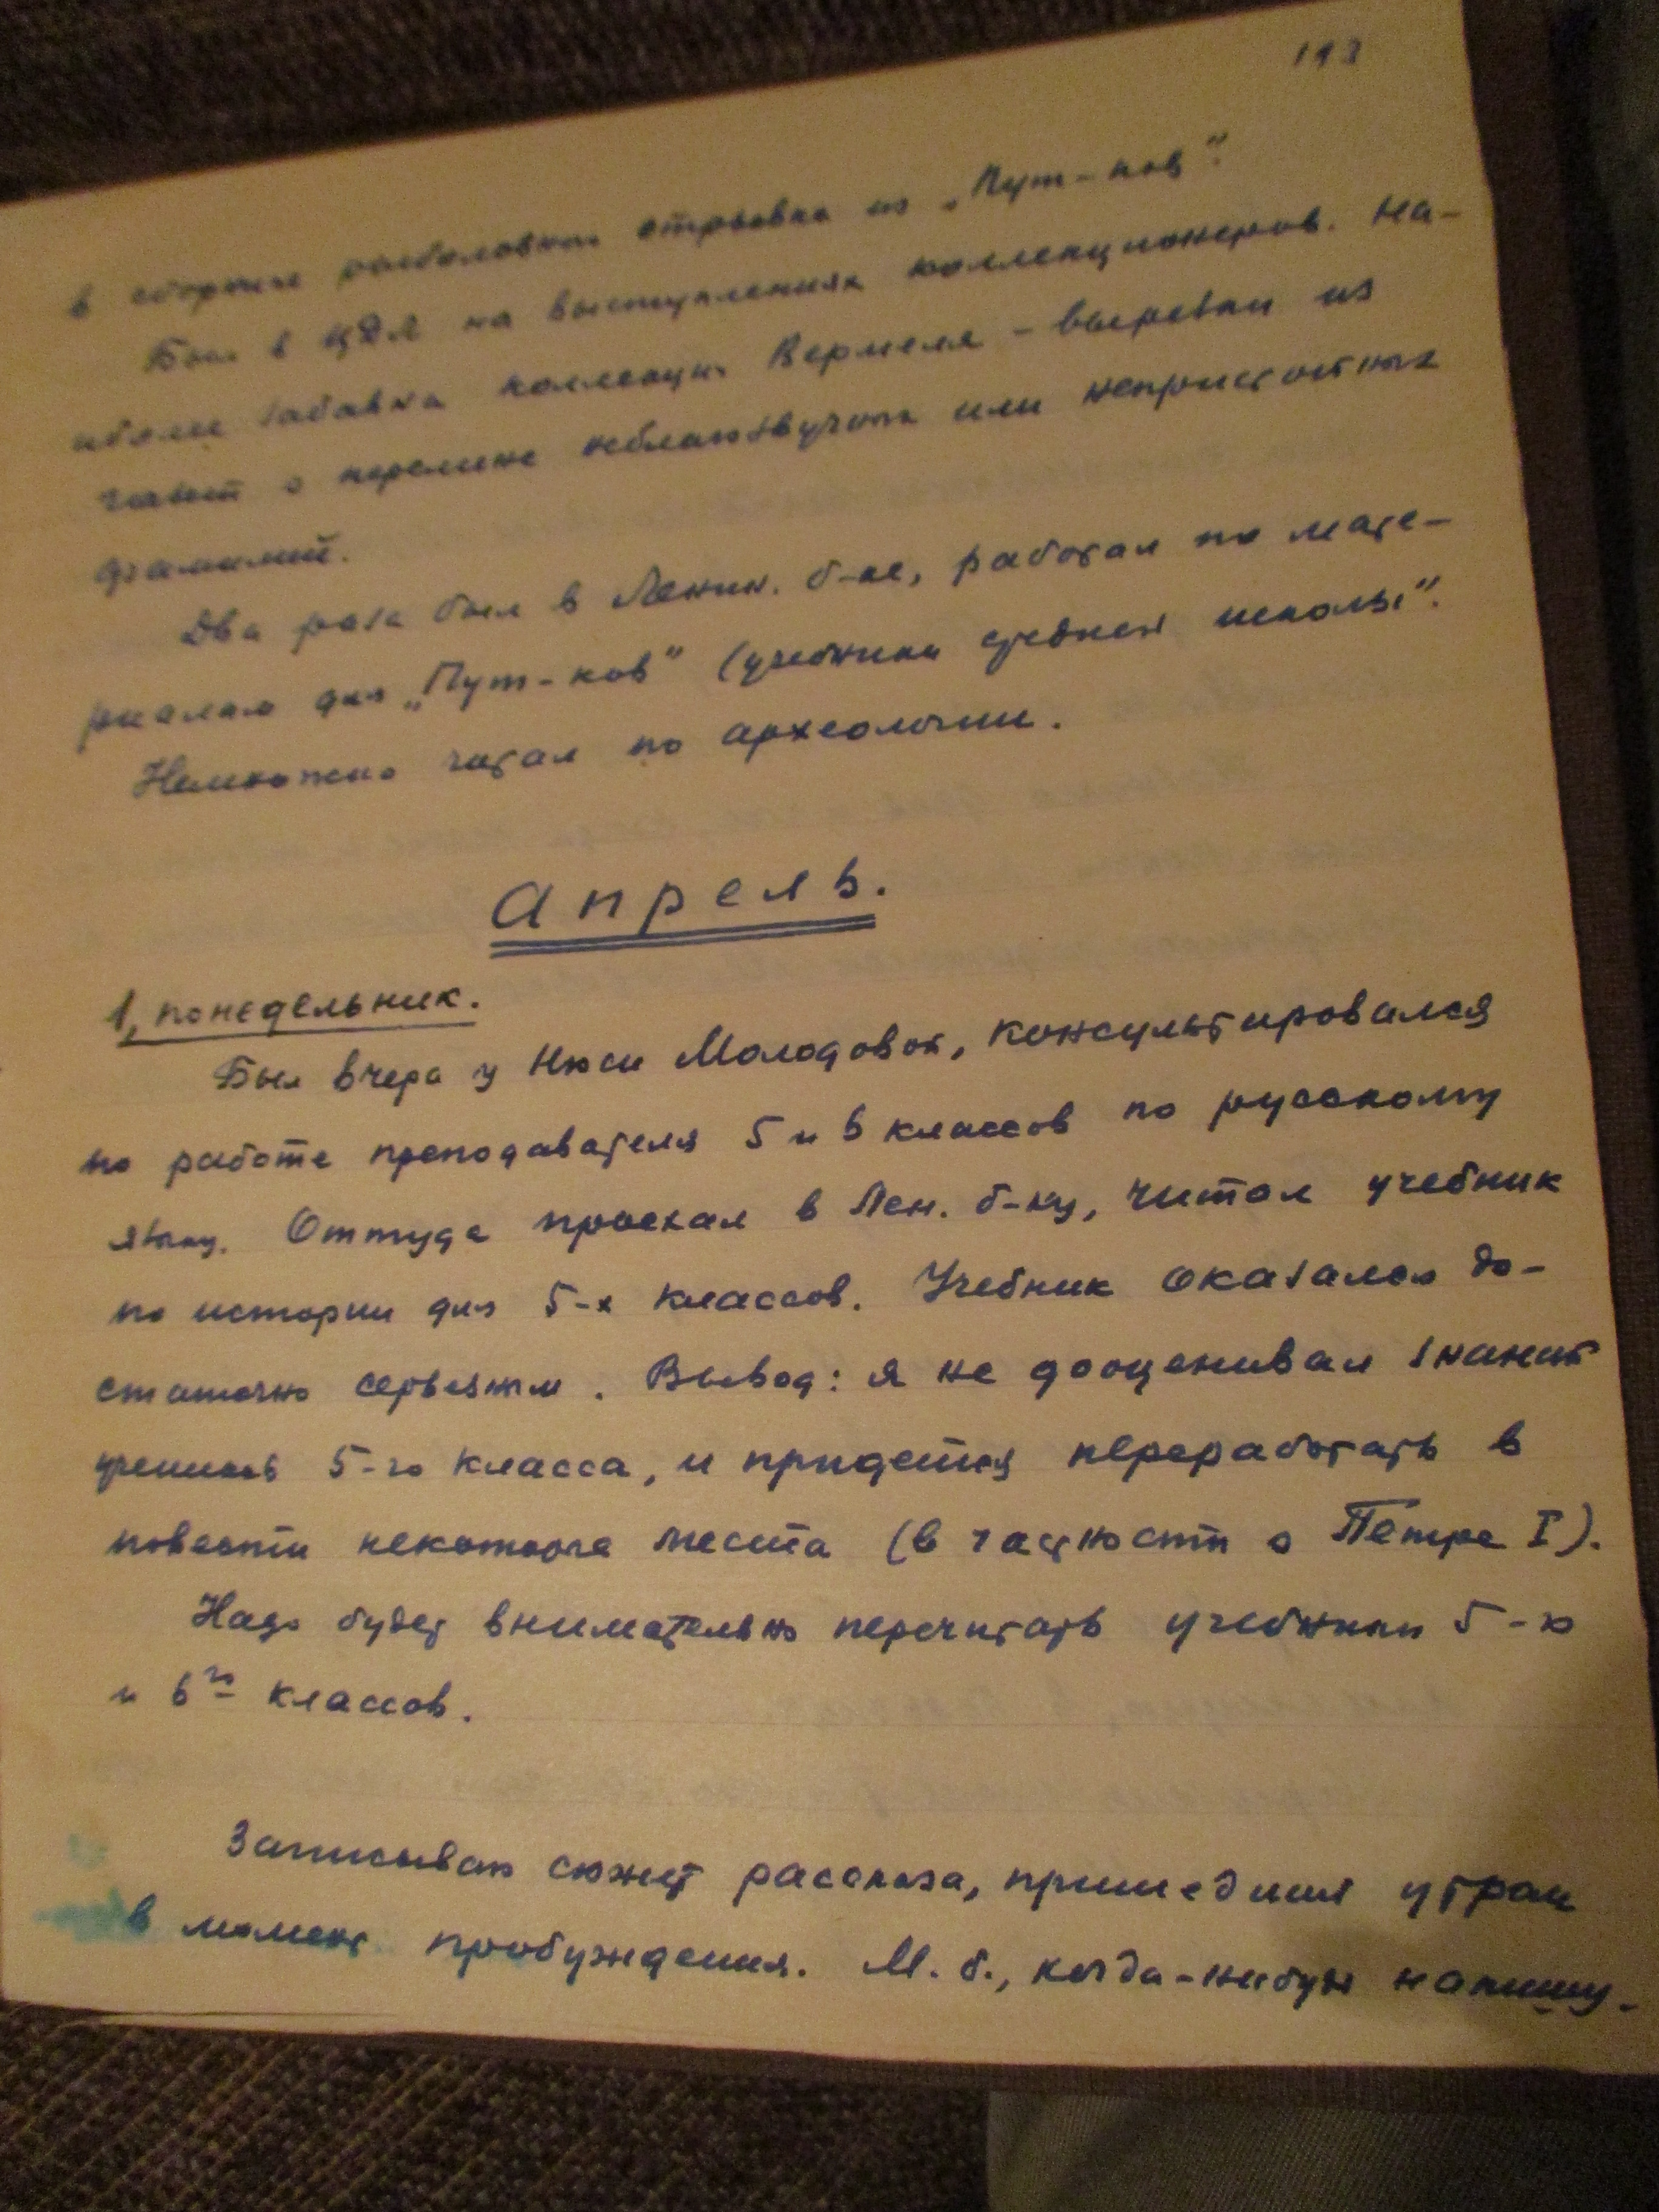 193
в сборнике рыболовном отрывка из „Пут-ков".
Был в ЦДЛ на выступлениях коллекционеров. На-
иболее забавна коллекция Вермеля – вырезки из
газет о перемене неблагозвучных или непристойных
фамилий.
Два раза был в Ленин. б-ке, работал по мате-
риалам для „Пут-ков" (учебники средней школы".
Немножко читал по археологии.
Апрель.
1, понедельник.
Был вчера у Нюси Молодовой, консультировался
по работе преподавателя 5 и 6 классов по русскому
языку. Оттуда проехал в Лен. б-ку, читал учебник
по истории для 5-х классов. Учебник оказался до-
статочно серьезным. Вывод: я не дооценивал знаний
учеников 5-го класса, и придется переработать в
повести некоторые места (в частности о Петре I).
Надо будет внимательно перечитать учебники 5-го
и 6го классов.
Записываю сюжет рассказа, пришедший утром
в момент пробуждения. М. б., когда-нибудь напишу.